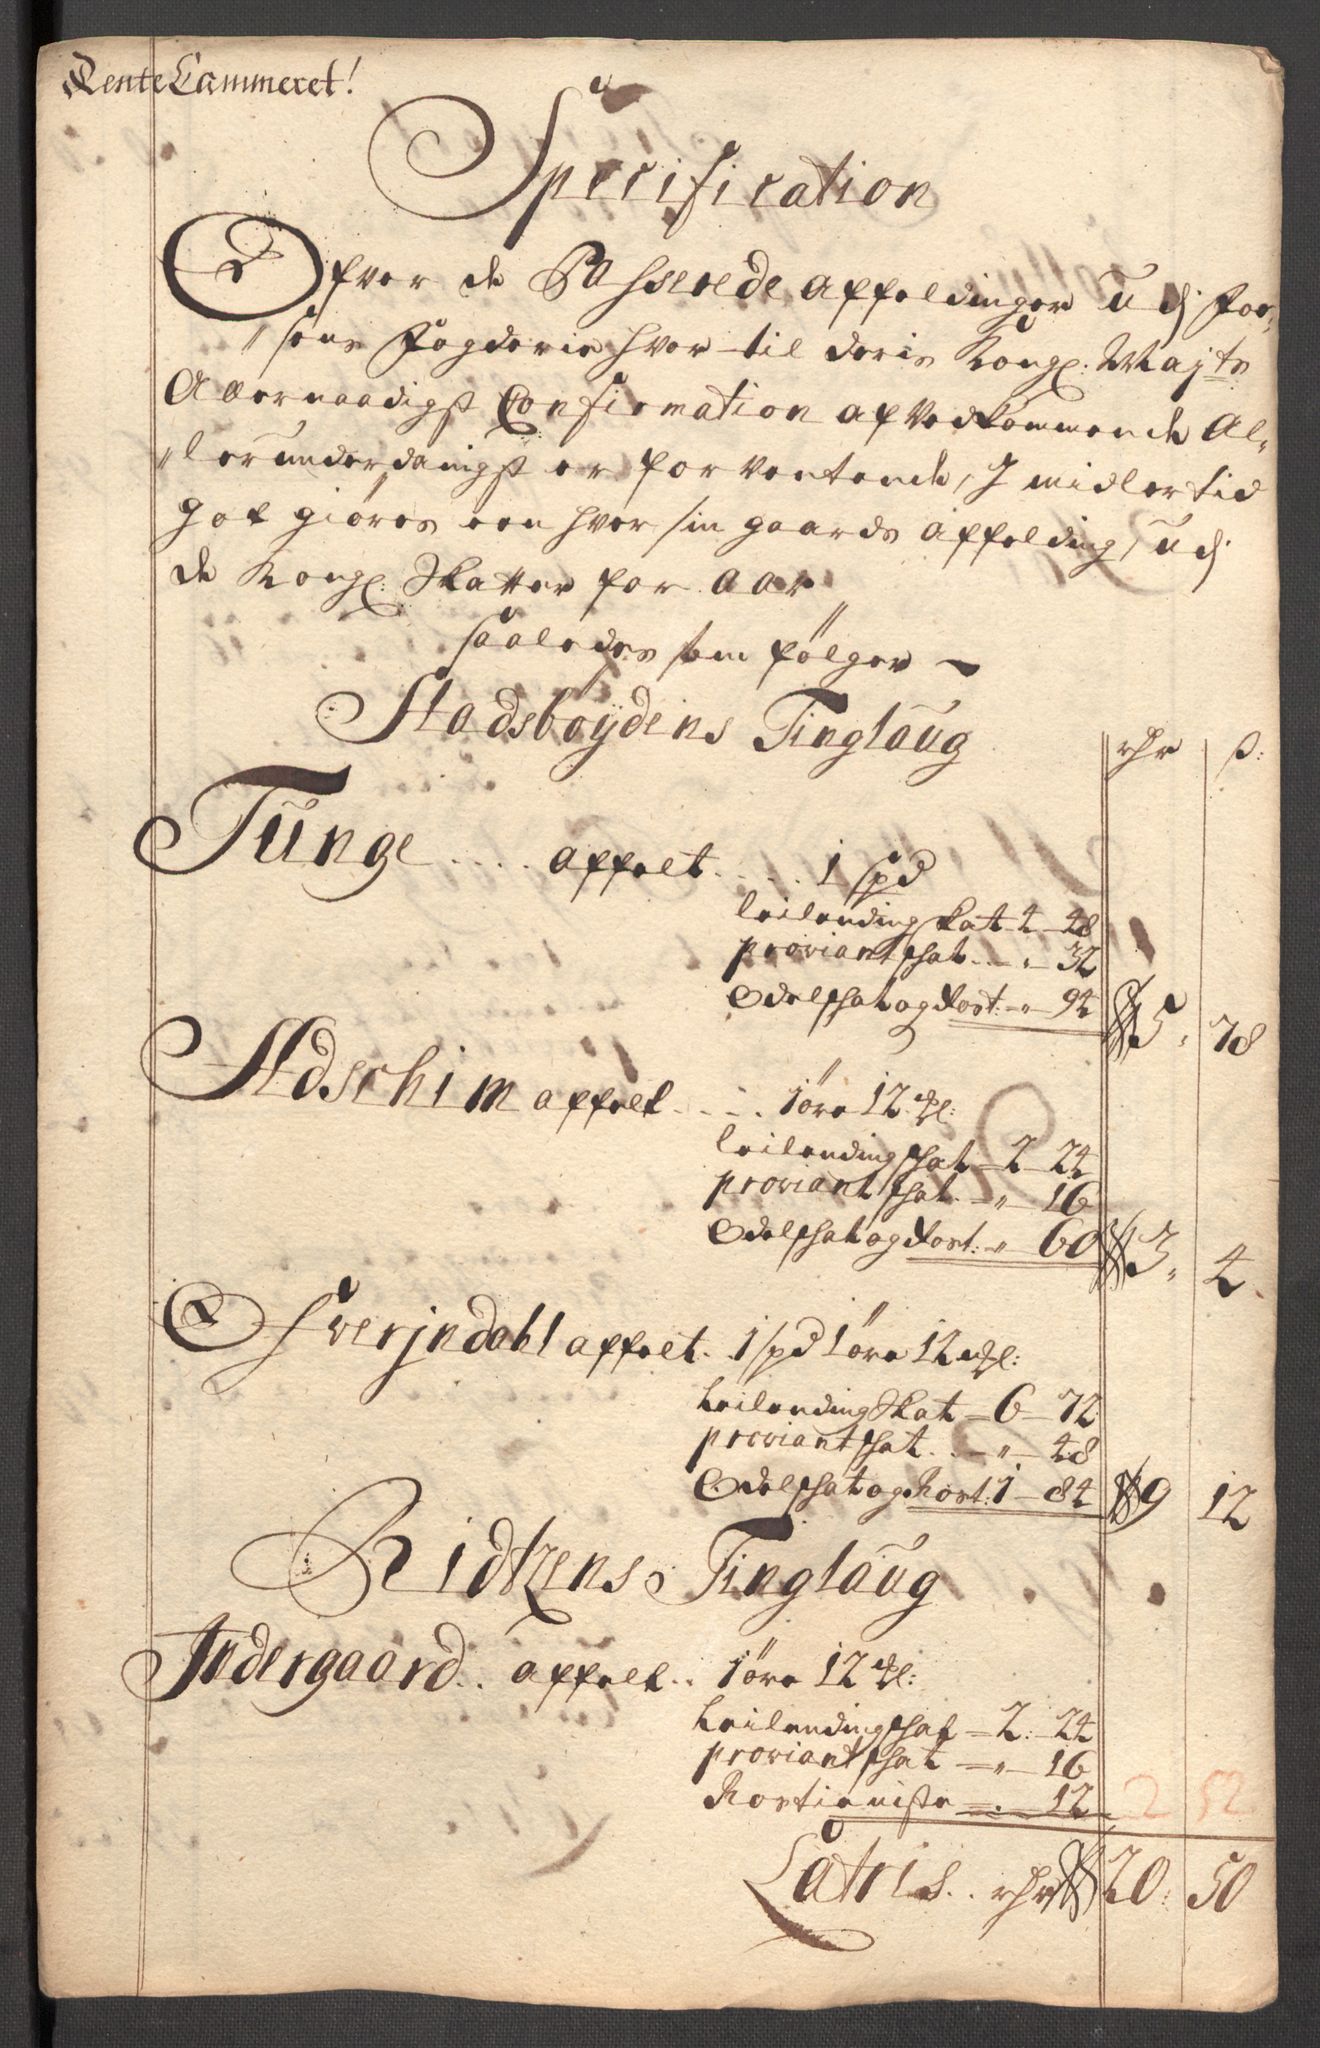 RenteCammeret!
Specification
Ofver de Passerede affeldinger udj Foe-
sens Fogderie hvor til deris Kongl: Mayts
Allernaadigst Confirmation af vedkommende Al-
lerunderdanigst er forventende, I midlertid
Gof giøres een hver sin gaards affelding, udj
de Kongl: Skatter for Aar
saaledes som følger
Stadsboÿdens Tinglaug
rdr ß:
Tunge .... affelt .... 1 spd
leilending skat 4 - 48
proviant skat .. " - 32
Odelskat og Rost: - " - 94 5 " 78
Adschim affelt .... 1 øre 12 mkl:
leilending skat - 2 - 24
proviant skat - " - 16
Odelskat og Rost: - " 60 3 " 4
Sverjndahl affelt .. 1 spd 1 øre 12 mkl:
Leilending Skat - 6 - 72
proviant skat .. - " - 48
Odelskat og Rost: 1 - 84 9 12
Ridtzens Tinglaug
Indergaard .. affelt .. 1 øre 12 mkl:
Leilending skat - 2: 24
proviant skat - " - 16
Rostieniste - . 12 2 52
Latris .. rdr 20: 50